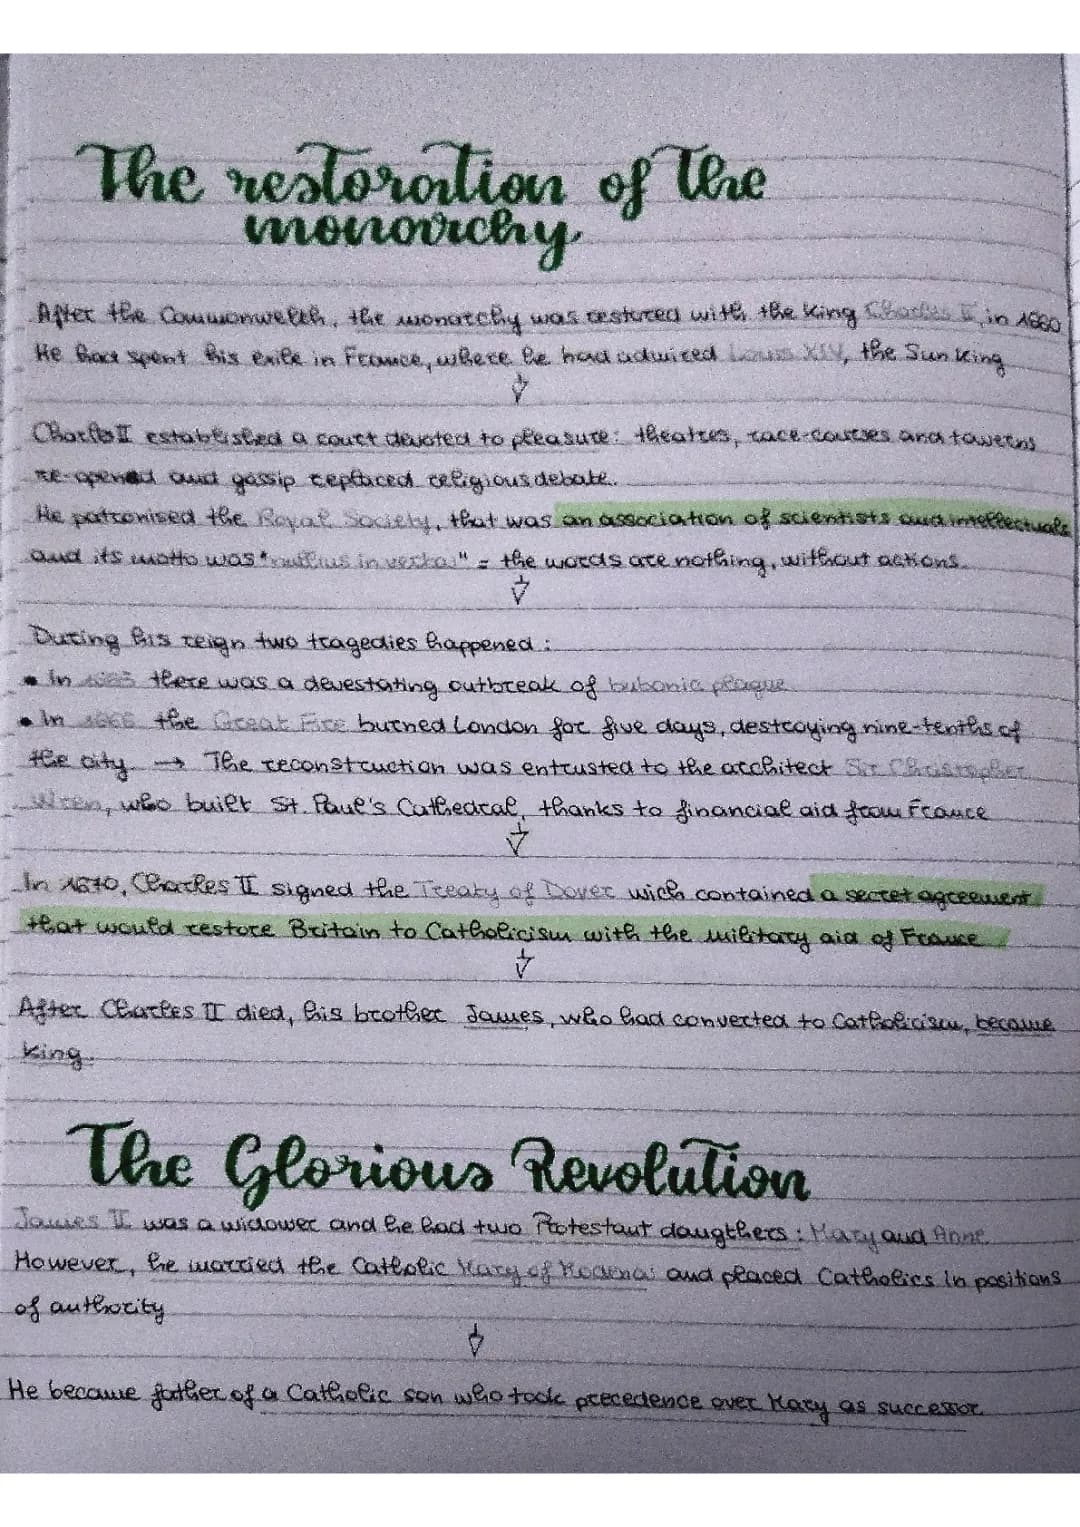 The restoration of the
monarchy
After the Commonwelth, the monarchy was restored with the King Charles II, in 1660
He had spent his exile in France, where he had admired Louis XIV, the Sun King
Charles II established a court devoted to pleasure: theatres, race-courses and taverns
re-opened and gossip replaced religious debate.
He patronised the Royal Society, that was an association of scientists and intellectuals
and its motto was "nullius in verba" = the words are nothing, without actions.
During his reign two tragedies happened:
• In there was a devestating outbreak of bubonic plague
• In 1666 the Great Fire burned London for five days, destroying nine-tenths of
the city. → The reconstruction was entrusted to the architect Sir Christopher
Wren, who built St. Paul's Cathedral, thanks to financial aid from France
In 1670, Charles II signed the Treaty of Dover wich contained a secret agreement
that would restore Britain to Catholicism with the military aid of France
After Charles II died, his brother James, who had converted to Catholicism, became
king.
The Glorious Revolution
James II was a widower and he had two Protestant daugthers: Mary and Anne
However, he married the Catholic Mary of Modena and placed Catholics in positions
of authority
He became father of a Catholic son who took precedence over Mary as successor